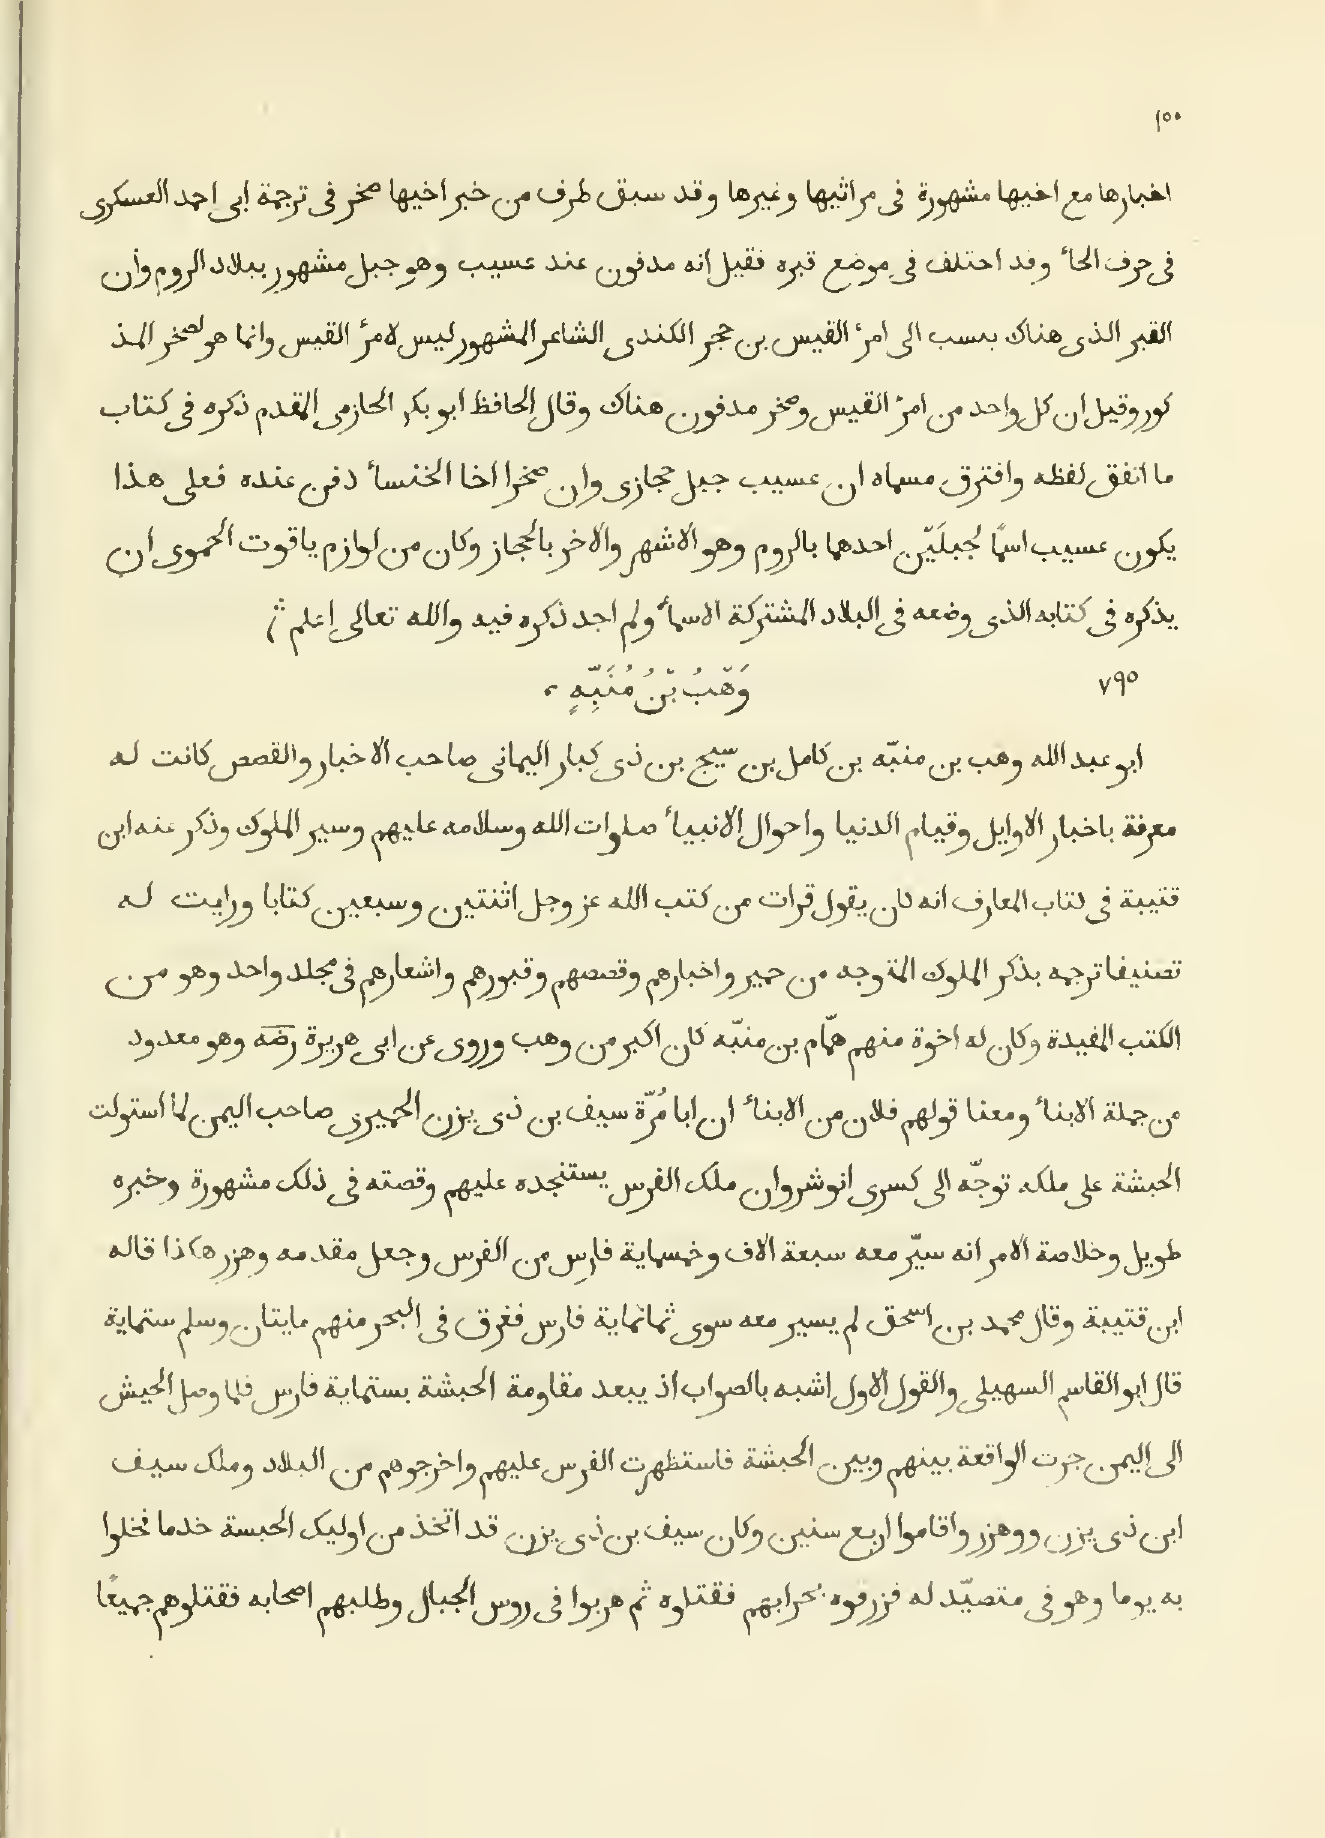 ١٥٠
اخبارها مع اخيها مشهورة فى مراثيها وغيرها وقد سبق طرف من خبر اخيها صخر فى ترجمة ابى احمد العسكرى
فى حرف الحأ وقد اختلف فى موضع قبره فقيل انه مدفون عند عسيب وهو جبل مشهور ببلاد الروم وان
القبر الذى هناك ينسب الى امرٔ القيس بن حجر الكندى الشاعر المشهور ليس لامرٔ القيس وانما هو لصخر المذ
كور وقيل ان كل واحد من امرٔ القيس وصخر مدفون هناك وقال الحافظ ابو بكر الحازمى المقدم ذكره فى كتاب
ما اتفق لفظه وافترق مسماه ان عسيب جبل حجازى وان صخرا اخا الخنسأ دفن عنده فعلى هذا
يكون عسيب اسمًا لجبلَيّن احدهما بالروم وهو الاشهر والاخر بالحجاز وكان من لوازم ياقوت الحموى ان
يذكره فى كتابه الذى وضعه فى البلاد المشتركة الاسمأ ولم اجد ذكره فيه والله تعالى اعلم
٧٩٥ وَهّبُ بّنُ مُنَبِّهٍ
ابو عبد الله وهب بن منبّه بن كامل بن سيج بن ذى كبار اليمانى صاحب الاخبار والقصص كانت له
معرفة باخبار الاوايل وقيام الدنيا واحوال الانبيأ صلوات الله وسلامه عليهم وسير الملوك وذكر عنه ابن
قتيبة فى كتاب المعارف انه كان يقول قرات من كتب الله عز وجل اثنتين وسبعين كتابا ورايت له
تصنيفا ترجمه بذكر الملوك المتوجه من حمير واخبارهم وقصصهم وقبورهم واشعارهم فى مجلد واحد وهو من
الكتب المفيدة وكان له اخوة منهم همّام بن منبّه كان اكبر من وهب وروى عن ابى هريرة رضه وهو معدود
من جملة الابنأ ومعنا قولهم فلان من الابنأ ان ابا مُرّة سيف بن ذى يزن الحميرى صاحب اليمن لما استولت
الحبشة على ملكه توجّه الى كسرى انوشروان ملك الفرس يستنجده عليهم وقصته فى ذلك مشهورة وخبره
طويل وخلاصة الامر انه سيّر معه سبعة الاف وخمسماية فارس من الفرس وجعل مقدمه وهزر هكذا قاله
ابن قتيبة وقال محمد بن اسحق لم يسير معه سوى ثمانماية فارس فغرق فى البحر منهم مايتان وسلم ستماية
قال ابو القاسم السهيلى والقول الاول اشبه بالصواب اذ يبعد مقاومة الحبشة بستماية فارس فلما وصل الجيش
الى اليمن جرت الواقعة بينهم وبين الحبشة فاستظهرت الفرس عليهم واخرجوهم من البلاد وملك سيف
ابن ذى يزن ووهزر واقاموا اربع سنين وكان سيف بن ذى يزن قد اتخذ من اوليك الحبسة خدما فخلوا
به يوما وهو فى متصيّد له فزرقوه بحرابهم فقتلوه ثم هربوا فى روس الجبال وطلبهم اصحابه فقتلوهم جميعًا